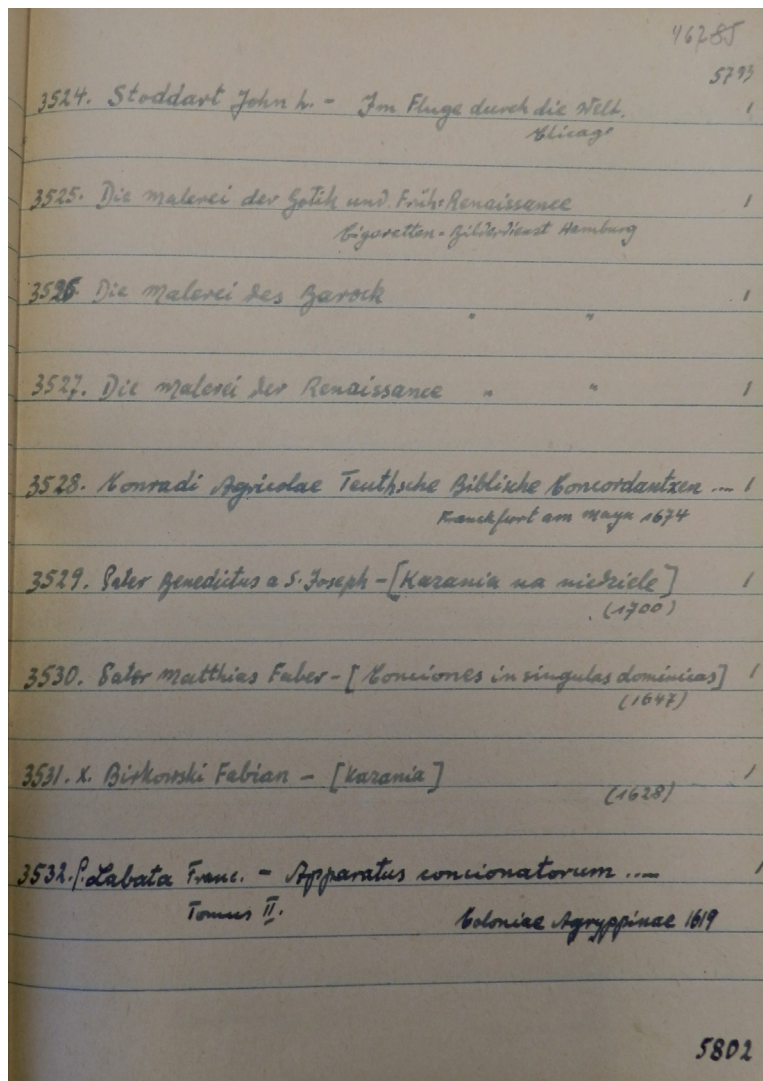 46785
5793
3524. Stoddart John L. - Im Fluge durch die Welt. 1
Chicago
3525. Die Malerei der Gotik und Früh-Renaissance 1
Cigaretten-Bilderdienst Hamburg
3526. Die Malerei des Barock 1
" "
3527. Die Malerei der Renaissance " " 1
3528. Conradi Agricolae Teuthsche Biblische Concordantzen .... 1
Franckfurt am Mayn 1674
3529. Pater Benedictus a S. Joseph - [Kazania na niedziele] 1
(1700)
3530. Pater Matthias Faber - [Conciones in singulas dominicas] 1
(1647)
3531. X. Birkowski Fabian - [Kazania] 1
(1628)
3532. P. Labata Franc. - Apparatus concionatorum .... 1
Tomus II. Coloniae Agryppinae 1619
5802